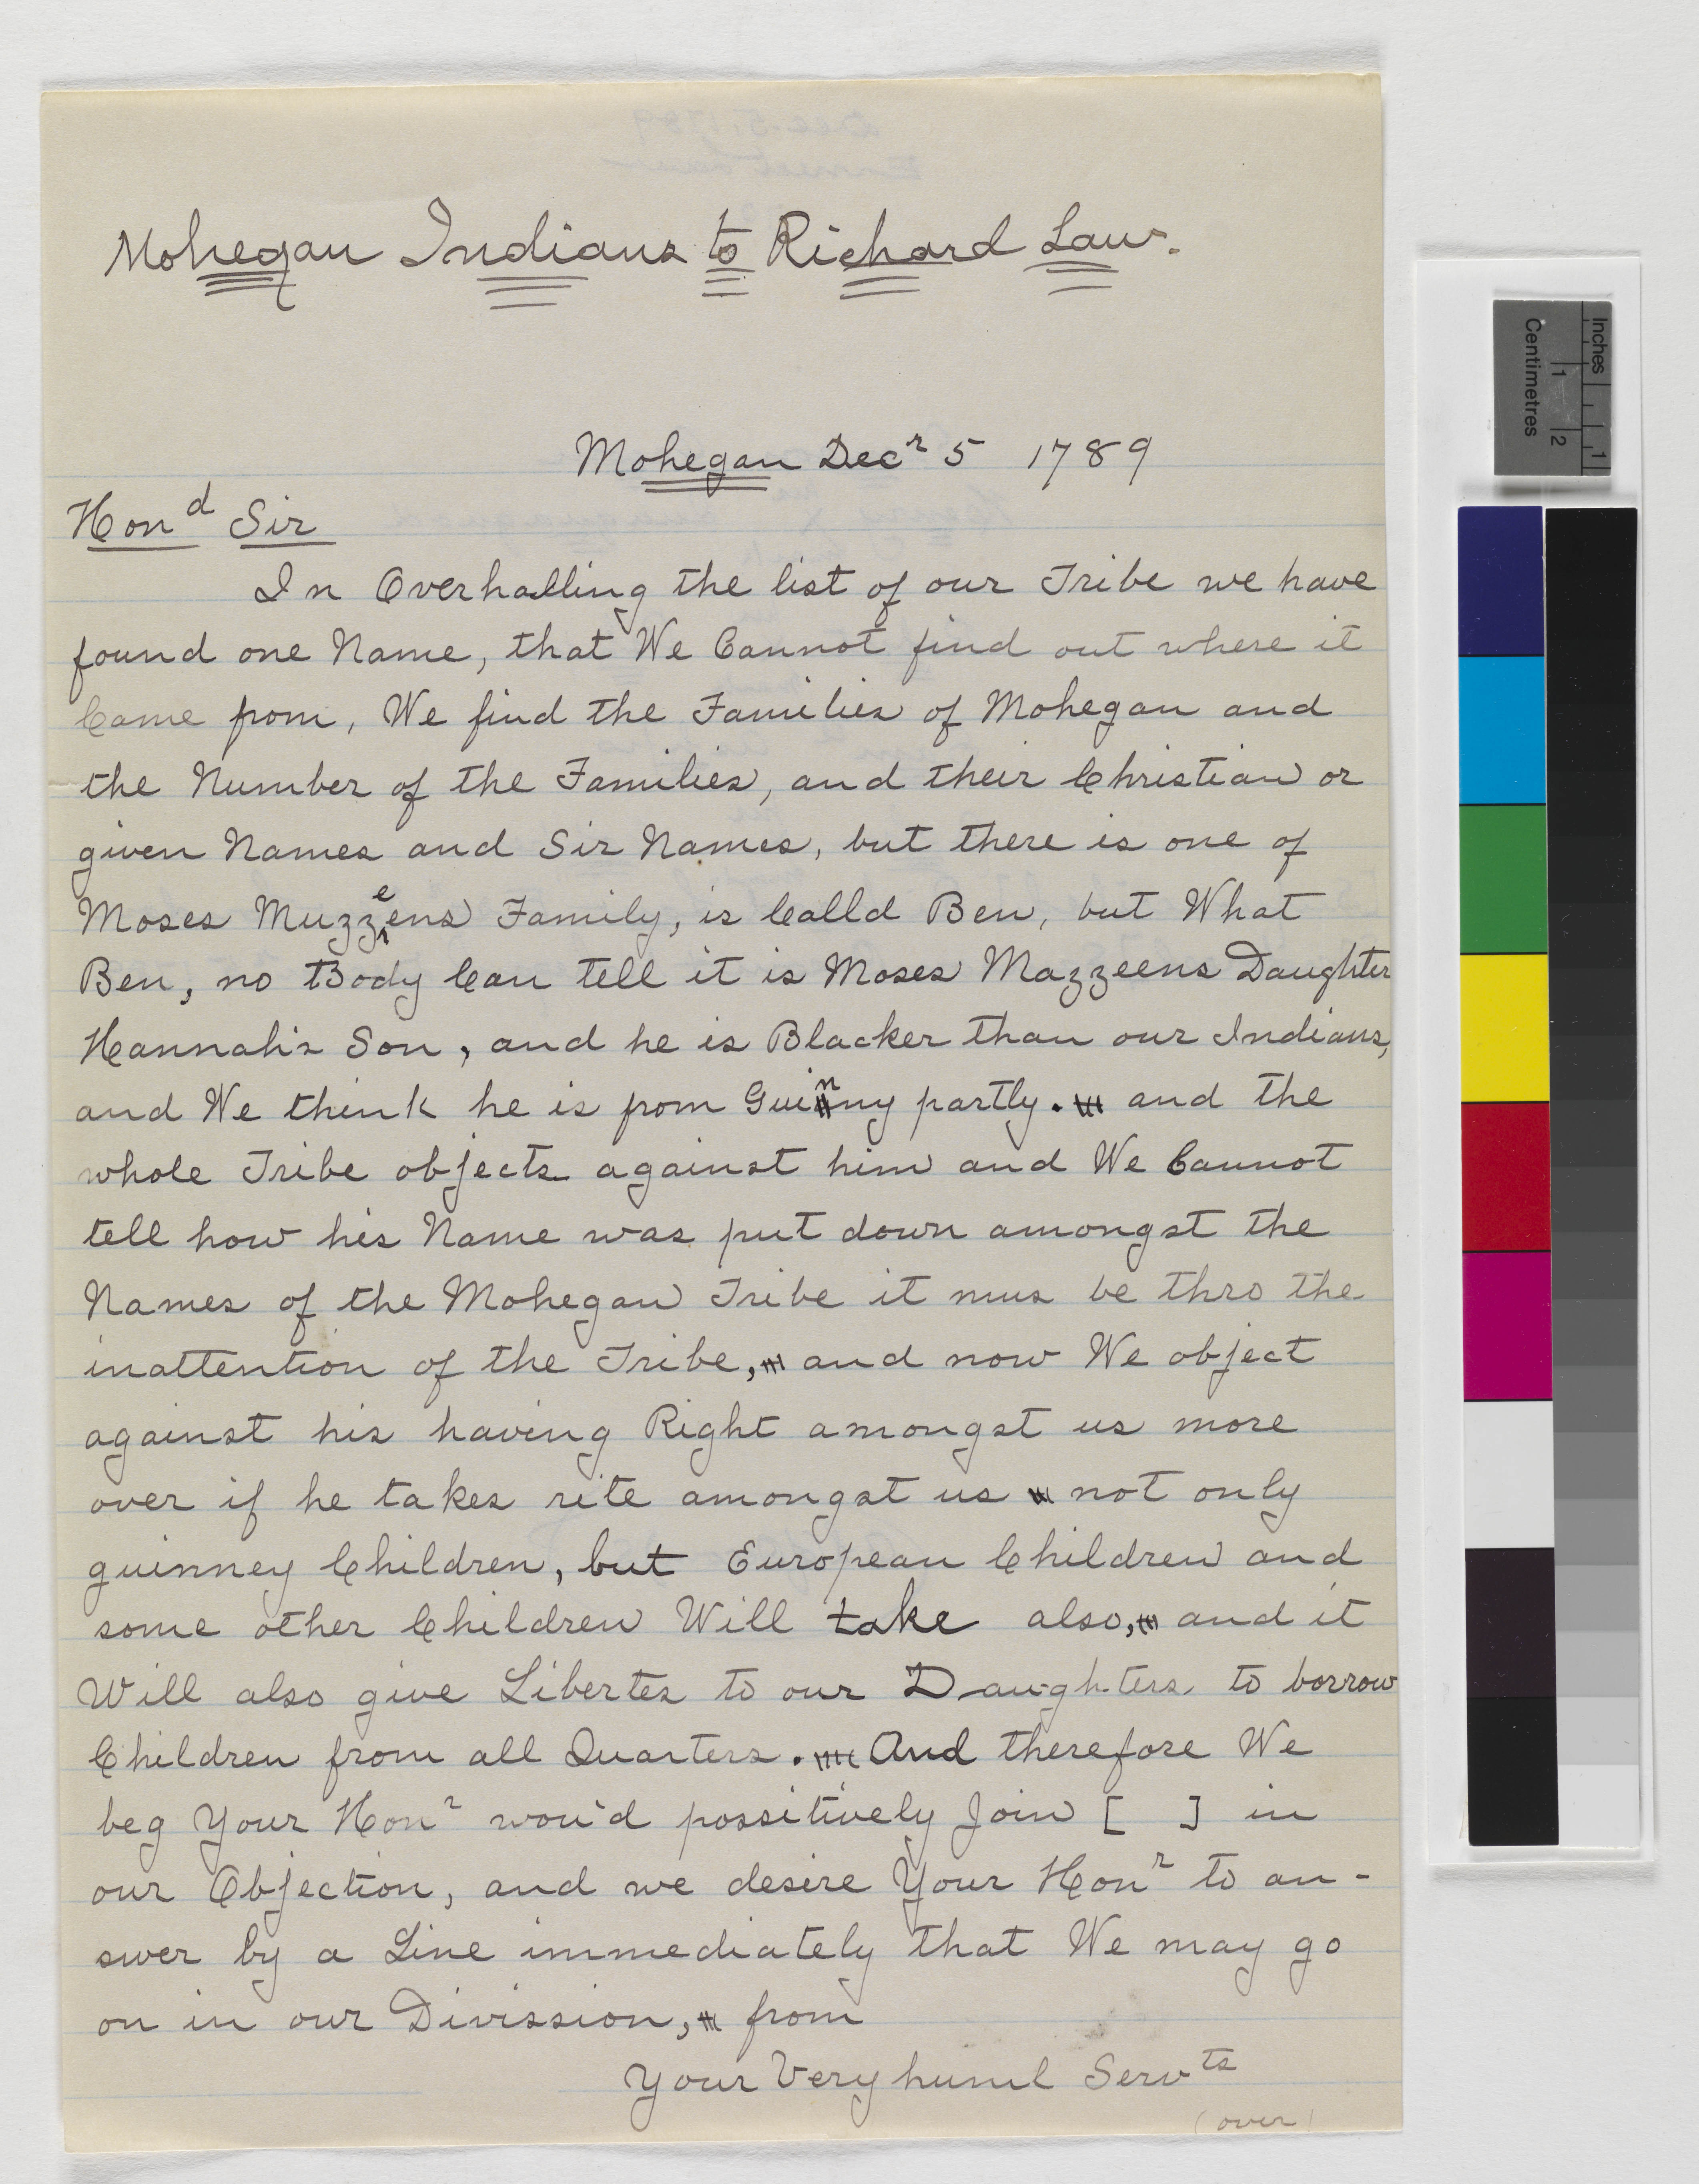 Mohegan Indians to Richard Law.
Mohegan Decr 5 1789
Hond Sir
In Overhalling the list of our Tribe we have
found one Name, that We Cannot find out where it
Came from, We find the Families of Mohegan and
the Number of the Families, and their Christian or
given Names and Sir Names, but there is one of
Moses Muzzeens Family, is Calld Ben, but What
Ben, no Body Can tell it is Moses Mazzeens Daughter
Hannah's Son, and he is Blacker than our Indians,
and We think he is from Guinny partly. and the
whole Tribe objects against him and We Cannot
tell how his Name was put down amongst the
Names of the Mohegan Tribe it mus be thro the
inattention of the Tribe, and now We object
against his having Right amongst us more
over if he takes rite amongst us not only
guinney Children, but European Children and
some other Children Will take also, and it
Will also give Libertes to our Daughters to borrow
Children from all Quarters. And therefore We
beg Your Honr wou'd possitively Join [ ] in
our Objection, and we desire Your Honr to an-
swer by a Line immediately that We may go
on in our Division, from
Your Very huml Servts
(over)
Inches
Centimetres
1
2
1